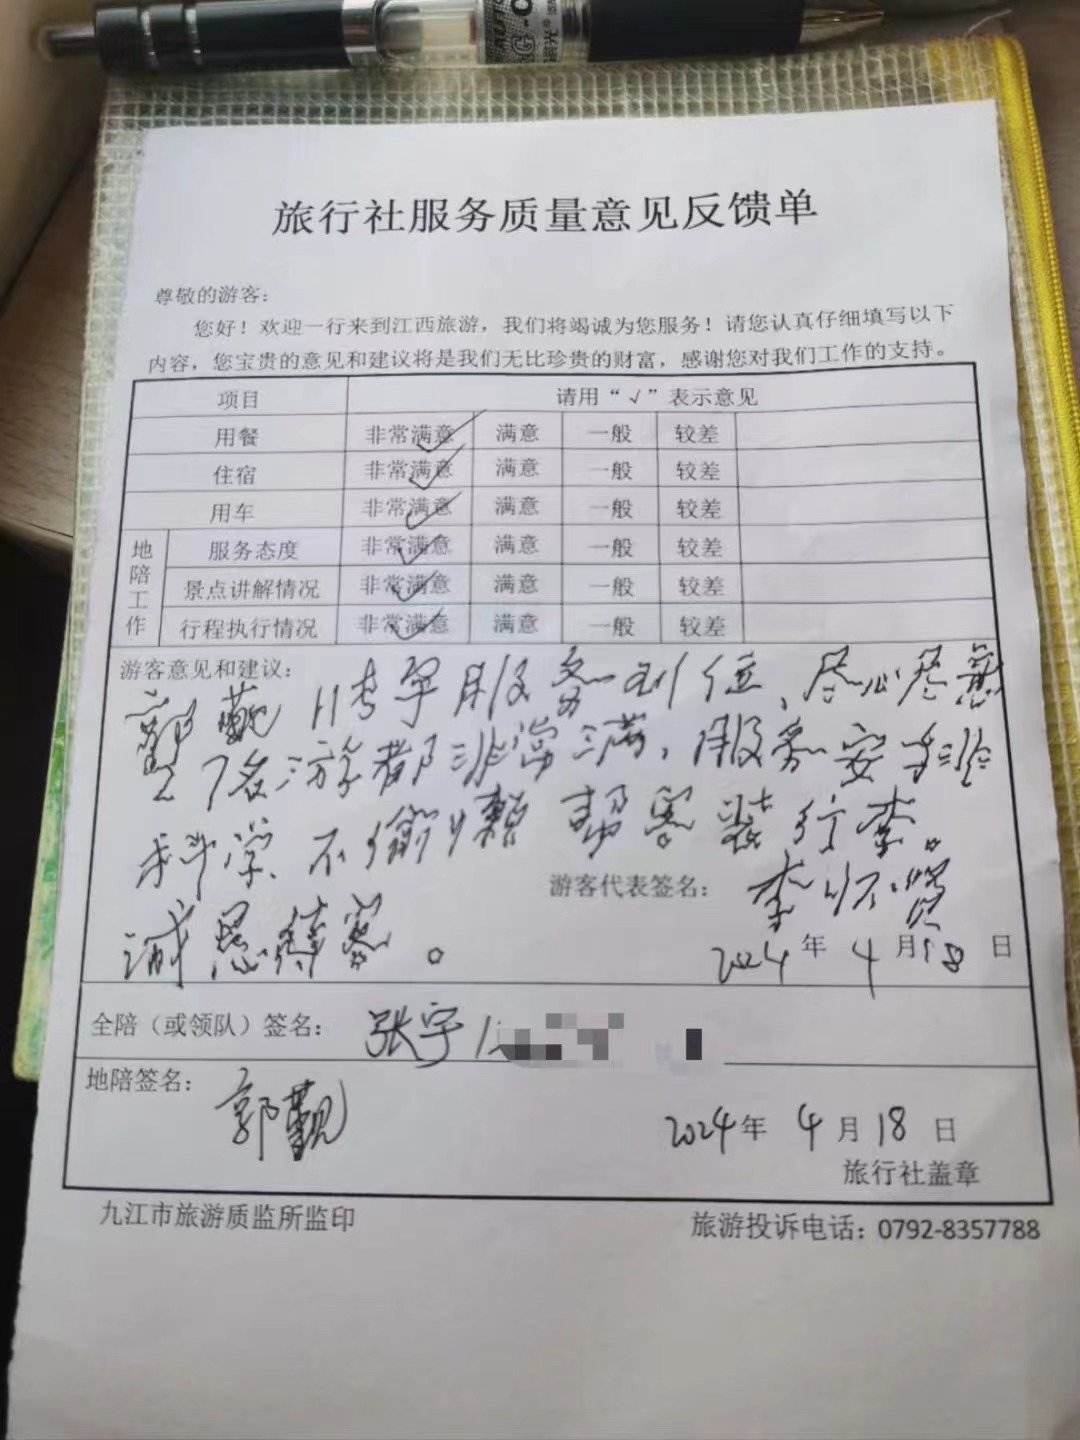 旅行社服务质量意见反馈单
尊敬的游客：
您好！欢迎一行来到江西旅游，我们将竭诚为您服务！请您认真仔细填写以下
内容，您宝贵的意见和建议将是我们无比珍贵的财富，感谢您对我们工作的支持。
项目 请用“√”表示意见
用餐 非常满意 满意 一般 较差
住宿 非常满意 满意 一般 较差
用车 非常满意 满意 一般 较差
地陪工作
服务态度 非常满意 满意 一般 较差
景点讲解情况 非常满意 满意 一般 较差
行程执行情况 非常满意 满意 一般 较差
游客意见和建议：
服务到位、尽心尽意
7名游客都非常满，服务安排
科学 不偷懒 帮客装行李。
诚恳待客。
游客代表签名： 李
2024年4月18日
全陪（或领队）签名： 张宇
地陪签名： 郭觐
2024年4月18日
旅行社盖章
九江市旅游质监所监印 旅游投诉电话：0792-8357788